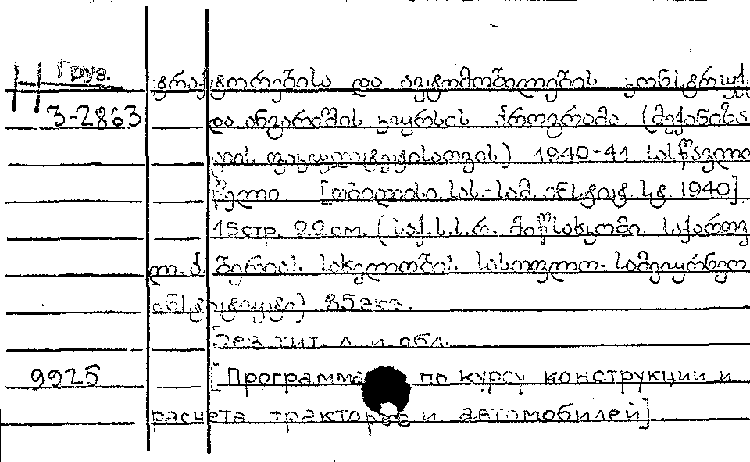 Груз.
ტრაქტორებისა და ავტომობილების კონსტრუქ
3-2863 და ანგარიშის კურსის პროგრამა (მექანიზა
ციის ფაკულტეტისათვის) 1940-41 სასწავლო
წელი [თბილისი სას.-სამ. ინსტიტ. სტ. 1940]
15 стр. 22 см. (საქ.ს.ს.რ. მიწსახკომი. საქართვ
ლ.პ. ბერიას სახელობის სასოფლო-სამეურნეო
ინსტიტუტი) 85 экз.
Без тит. л. и обл.
9925 [Программа по курсу конструкции и
расчета тракторов и автомобилей]